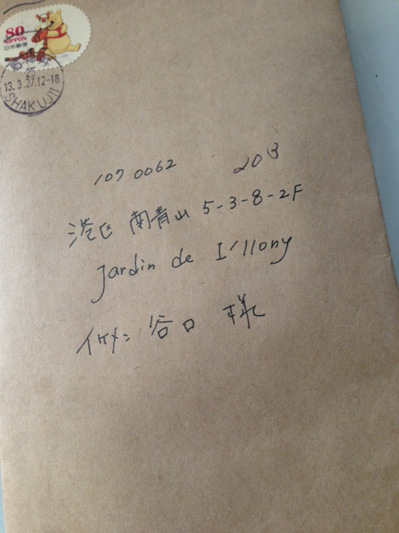 80
NIPPON
日本郵便
13.3.27.12-18
SHAKUJII
107 0062 203
港区 南青山 5-3-8-2F
Jardin de I'llony
谷口 様